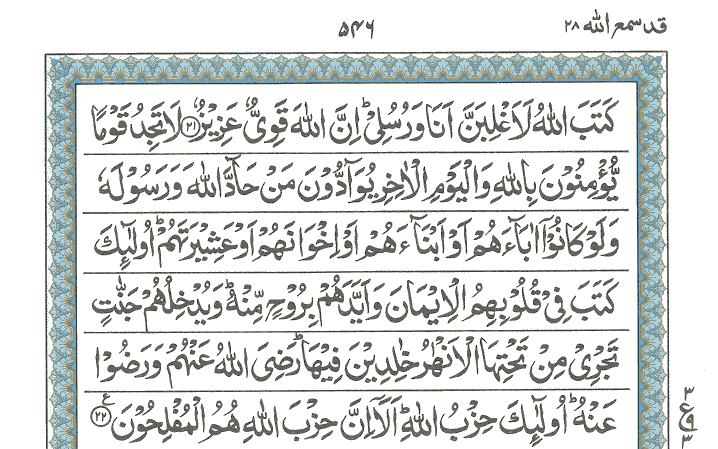 قد سمع الله ٢٨
۵۴۶
كَتَبَ اللّٰهُ لَاَغْلِبَنَّ اَنَا وَرُسُلِیْ ؕ اِنَّ اللّٰهَ قَوِیٌّ عَزِیْزٌ ﴿۲۱﴾ لَا تَجِدُ قَوْمًا
یُّؤْمِنُوْنَ بِاللّٰهِ وَالْیَوْمِ الْاٰخِرِ یُوَآدُّوْنَ مَنْ حَآدَّ اللّٰهَ وَرَسُوْلَهٗ
وَلَوْ كَانُوْۤا اٰبَآءَهُمْ اَوْ اَبْنَآءَهُمْ اَوْ اِخْوَانَهُمْ اَوْ عَشِیْرَتَهُمْ ؕ اُولٰٓىِٕكَ
كَتَبَ فِیْ قُلُوْبِهِمُ الْاِیْمَانَ وَاَیَّدَهُمْ بِرُوْحٍ مِّنْهُ ؕ وَیُدْخِلُهُمْ جَنّٰتٍ
تَجْرِیْ مِنْ تَحْتِهَا الْاَنْهٰرُ خٰلِدِیْنَ فِیْهَا ؕ رَضِیَ اللّٰهُ عَنْهُمْ وَرَضُوْا
عَنْهُ ؕ اُولٰٓىِٕكَ حِزْبُ اللّٰهِ ؕ اَلَاۤ اِنَّ حِزْبَ اللّٰهِ هُمُ الْمُفْلِحُوْنَ ﴿۲۲﴾ ع
٣
ع
٩
٣